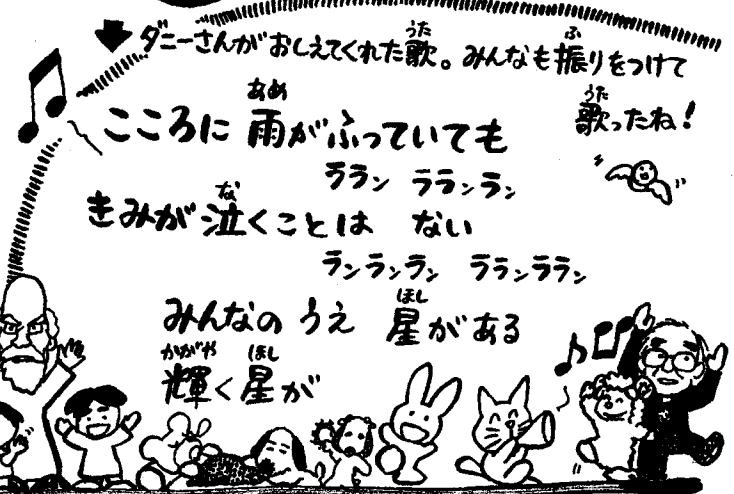 ダニーさんがおしえてくれた歌。みんなも振りをつけて
歌ったね!
こころに 雨がふっていても
ララン ラランラン
きみが泣くことは ない
ランランラン ラランララン
みんなの うえ 星がある
輝く星が